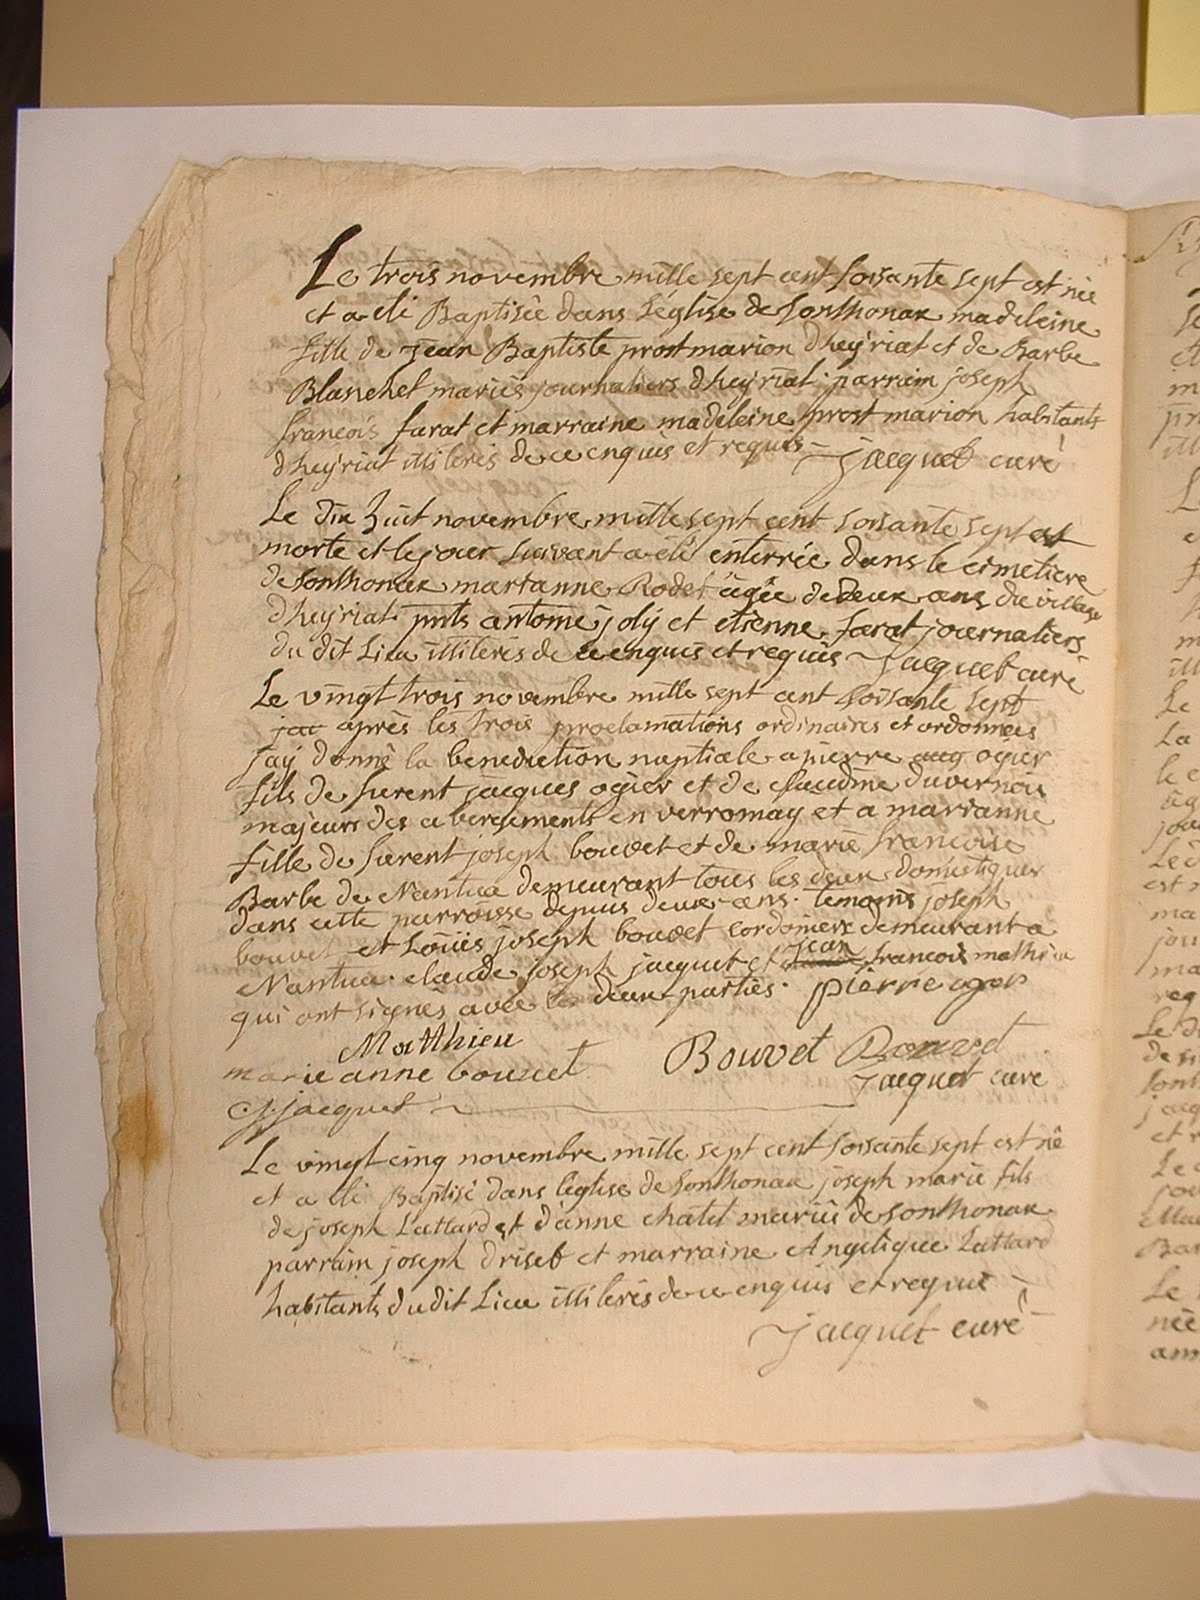 Le trois novembre mille sept cent soisante sept est née
et a été Baptisée dans l'église de sonthonax madeleine
fille de jean Baptiste prost marion dheyriat et de Barbe
Blanchet mariés journaliers dheyriat parrain joseph
francois farat et marraine madeleine prost marion habitants
dheyriat illiterés de ce enquis et requis jacquet curé
Le dix huit novembre mille sept cent soisante sept est
morte et le jour suivant a été enterrée dans le cimetiere
de sonthonax marianne Rodet agée de deux ans du village
dheyriat pnts antoine joly et etienne farat journaliers
du dit Lieu illiterés de ce enquis et requis jacquet curé
Le vingt trois novembre mille sept cent soisante sept
jai après les trois proclamations ordinaires et ordonnees
jay donné la benediction nuptiale a pierre aug ogier
fils de furent jacques ogier et de claudine duvernois
majeurs des abergements en verromay et a marianne
fille de furent joseph bouvet et de marie francoise
Barbe de Nantua demeurant tous les deux domestiques
dans cette parroisse depuis deux ans. temoins joseph
bouvet et Loüis joseph bouvet cordoniers demeurant a
Nantua claude joseph jacquet et jean francois mathieu
qui ont signés avec les deux parties. pierre oger
Matthieu
marie anne bouvet Bouvet Bouvet
jacquet curé
cj. jacquet
Le vingt cinq novembre mille sept cent soisante sept est né
et a été Baptisé dans léglise de sonthonax joseph marie fils
de joseph Lattard et d'anne chatel mariés de sonthonax
parrain joseph driset et marraine Angelique Lattard
habitants dudit Lieu illiterés de ce enquis et requis
jacquet curé